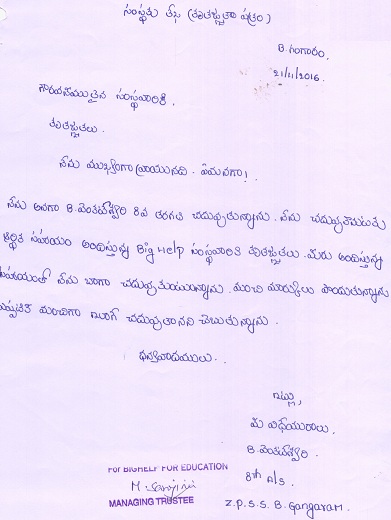 సంస్థకు లేఖ (కృతజ్ఞతా పత్రం)
B. గంగారం.
21/11/2016.
గౌరవనీయులైన సంస్థవారికి.
కృతజ్ఞతలు.
నేను ముఖ్యంగా వ్రాయునది. ఏమనగా!
నేను అనగా B. వెంకటేశ్వరి 8వ తరగతి చదువుతున్నాను. నేను చదువుకొనుటకు
ఆర్థిక సహాయం అందిస్తున్న Big Help సంస్థవారికి కృతజ్ఞతలు. మీరు అందిస్తున్న
సహాయంతో నేను బాగా చదువుకుంటున్నాను. మంచి మార్కులు పొందుతున్నాను
ఇప్పటికి మంచిగా చదువుతానని చెబుతున్నాను.
ధన్యవాదములు..
ఇట్లు,
మీ విధేయురాలు,
B. వెంకటేశ్వరి.
For BIGHELP FOR EDUCATION
8th c/s
MANAGING TRUSTEE
Z.P.S.S. B. Gangaram.